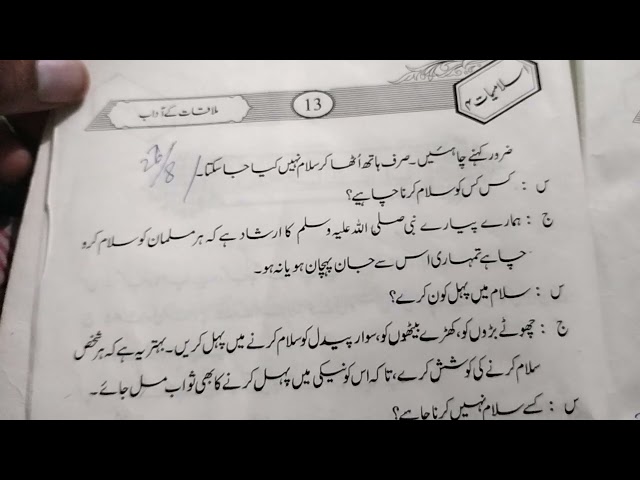 اسلامیات ۴
13
ملاقات کے آداب
26/8
ضرور کہنے چاہئیں۔ صرف ہاتھ اُٹھا کر سلام نہیں کیا جا سکتا۔
س : کس کس کو سلام کرنا چاہیے؟
ج : ہمارے پیارے نبی صلی اللہ علیہ وسلم کا ارشاد ہے کہ ہر مسلمان کو سلام کرو
چاہے تمہاری اس سے جان پہچان ہو یا نہ ہو۔
س : سلام میں پہل کون کرے؟
ج : چھوٹے بڑوں کو، کھڑے بیٹھوں کو، سوار پیدل کو سلام کرنے میں پہل کریں۔ بہتر یہ ہے کہ ہر شخص
سلام کرنے کی کوشش کرے، تاکہ اس کو نیکی میں پہل کرنے کا بھی ثواب مل جائے۔
س : کسے سلام نہیں کرنا چاہے؟